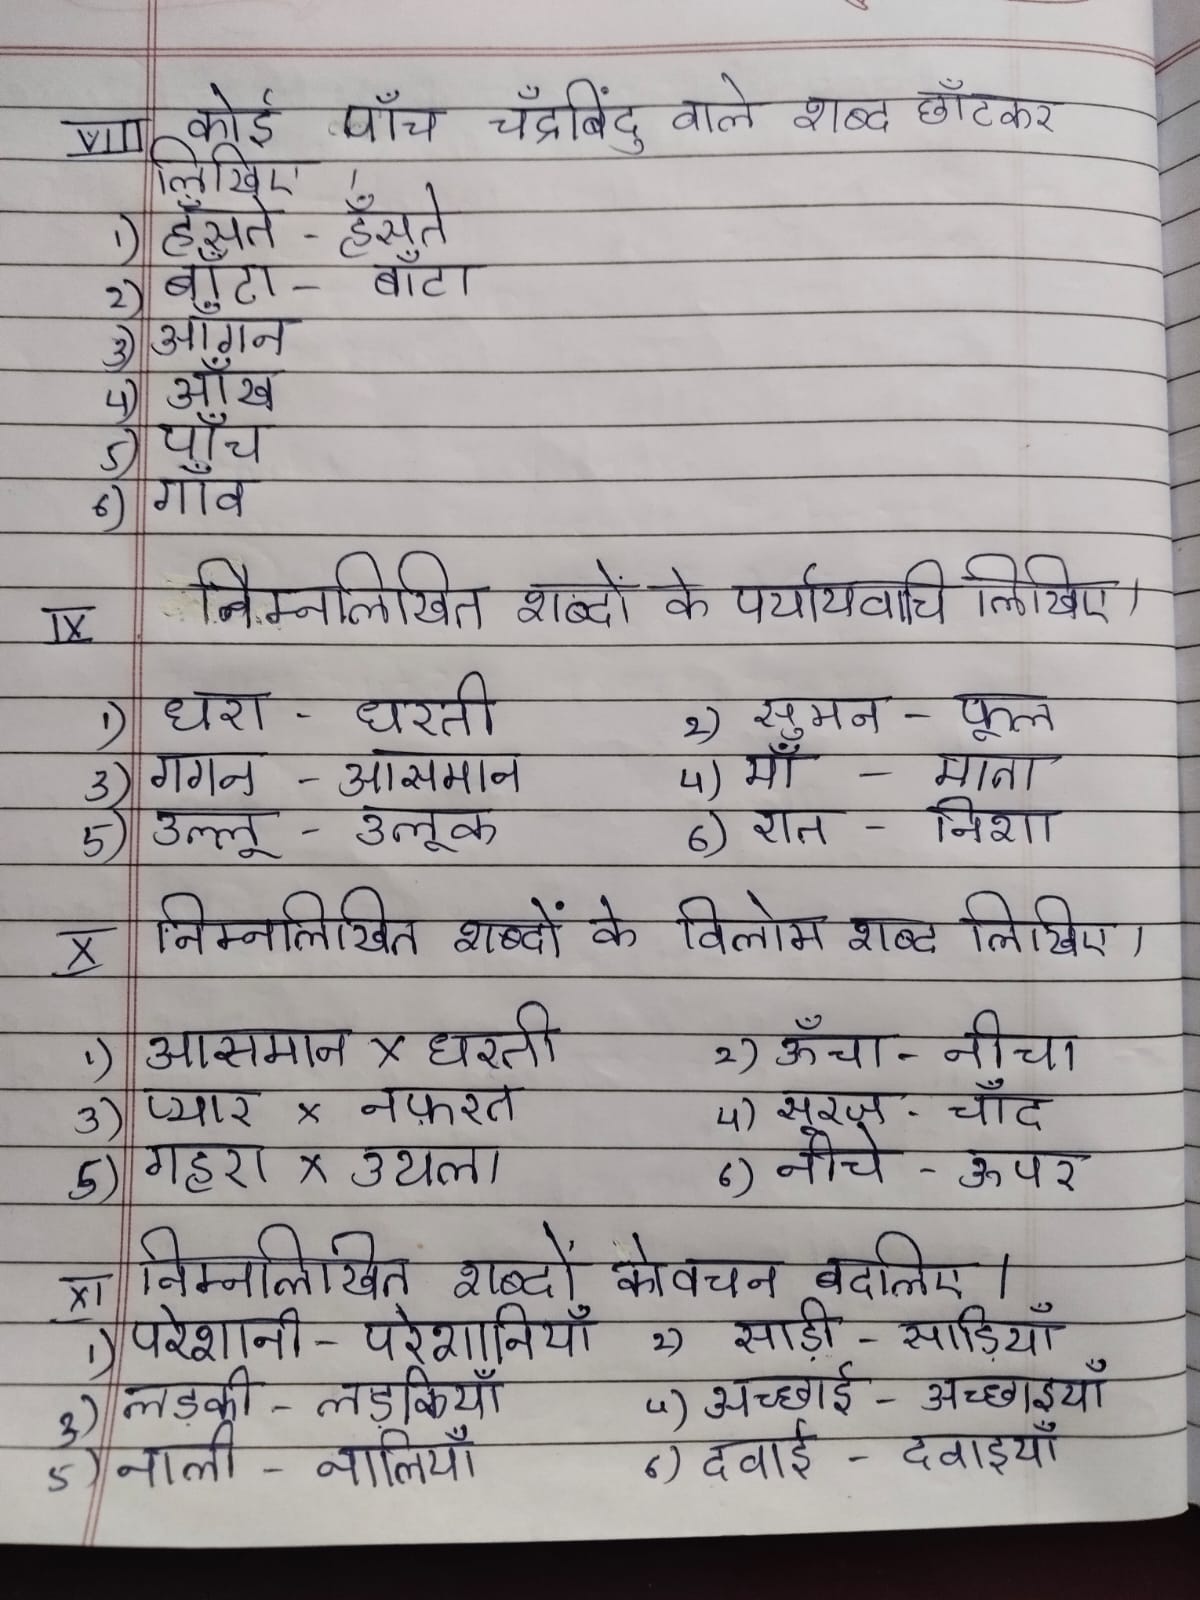 VIII कोई पाँच चँद्रबिंदु वाले शब्द छाँटकर
लिखिए ।
1) हँसते - हँसते
2) बाँटा - बाँटा
3) आँगन
4) आँख
5) पाँच
6) गाँव
IX निम्नलिखित शब्दों के पर्यायवाचि लिखिए।
1) धरा - धरती 2) सुमन - फूल
3) गगन - आसमान 4) माँ - माता
5) उल्लू - उलूक 6) रात - निशा
X निम्नलिखित शब्दों के विलोम शब्द लिखिए।
1) आसमान x धरती 2) ऊँचा - नीचा
3) प्यार x नफ़रत 4) सूरज - चाँद
5) गहरा x उथला 6) नीचे - ऊपर
XI निम्नलिखित शब्दों के वचन बदलिए।
1) परेशानी - परेशानियाँ 2) साड़ी - साड़ियाँ
3) लड़की - लड़कियाँ 4) अच्छाई - अच्छाइयाँ
5) नाली - नालियाँ 6) दवाई - दवाइयाँ